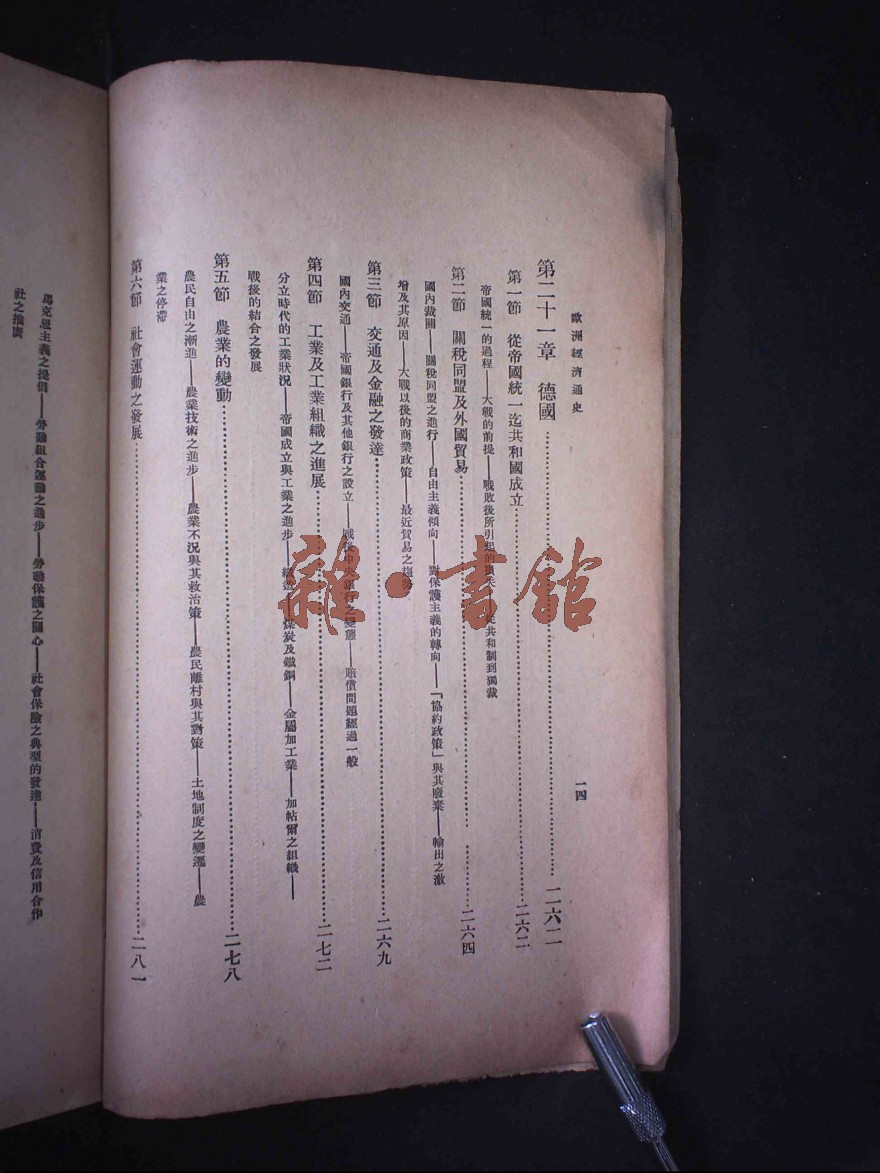 歐洲經濟通史
一四
第二十一章 德國……二六二
第一節 從帝國統一迄共和國成立……二六二
帝國統一的過程——大戰的前提——戰敗後所引起的 共和制到獨裁
第二節 關稅同盟及外國貿易……二六四
國內裁關——關稅同盟之進行——自由主義傾向——對保護主義的轉向——「協約政策」與其廢棄——輸出之激
增及其原因——大戰以後的商業政策——最近貿易之趨勢
第三節 交通及金融之發達……二六九
國內交通——帝國銀行及其他銀行之設立——戰後中央銀行之變態——賠償問題經過一般
第四節 工業及工業組織之進展……二七二
分立時代的工業狀況——帝國成立與工業之進步——煤炭及鐵鋼——金屬加工業——加帖爾之組織——
戰後的結合之發展
第五節 農業的變動……二七八
農民自由之漸進——農業技術之進步——農業不況與其救治策——農民離村與其對策——土地制度之變遷——農
業之停滯
第六節 社會運動之發展……二八一
馬克思主義之提倡——勞動組合運動之進步——勞動保護之關心——社會保險之典型的發達——消費及信用合作
社之推廣
雜·書館